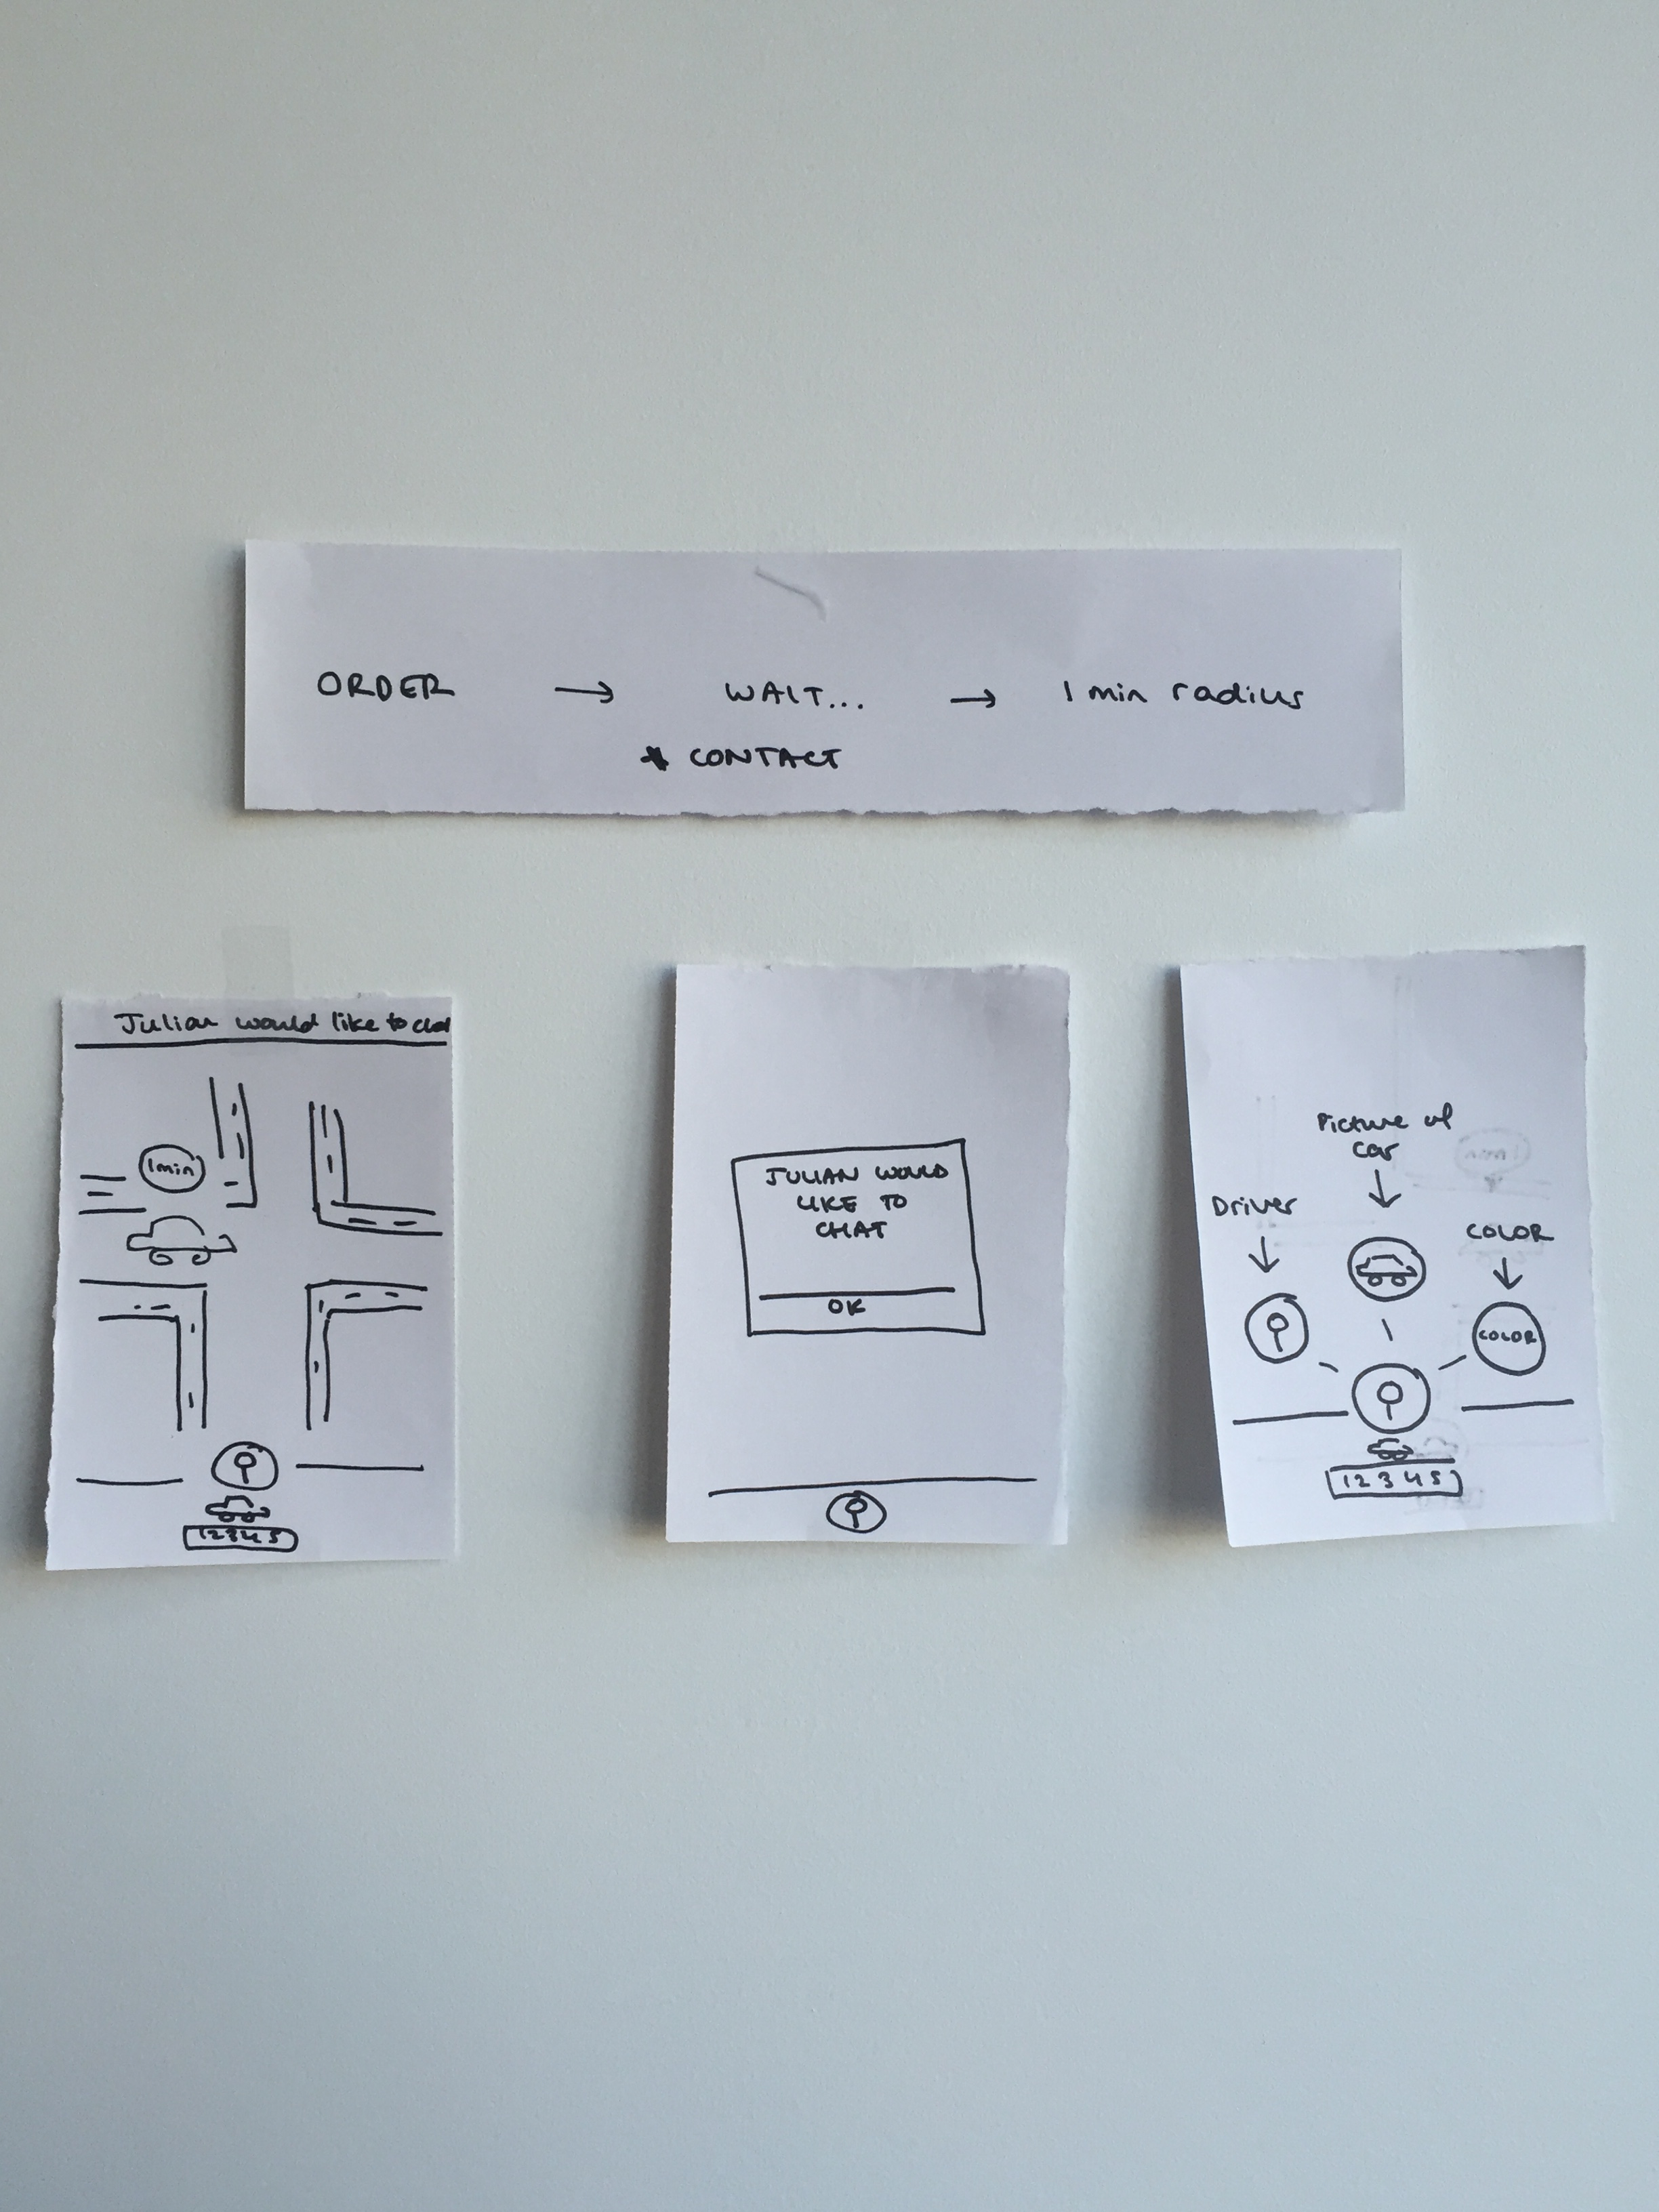 ORDER → WAIT... → 1 min radius
* CONTACT
Julian would like to chat
1min
12345
JULIAN WOULD
LIKE TO
CHAT
OK
Picture of
car
Driver
COLOR
COLOR
12345